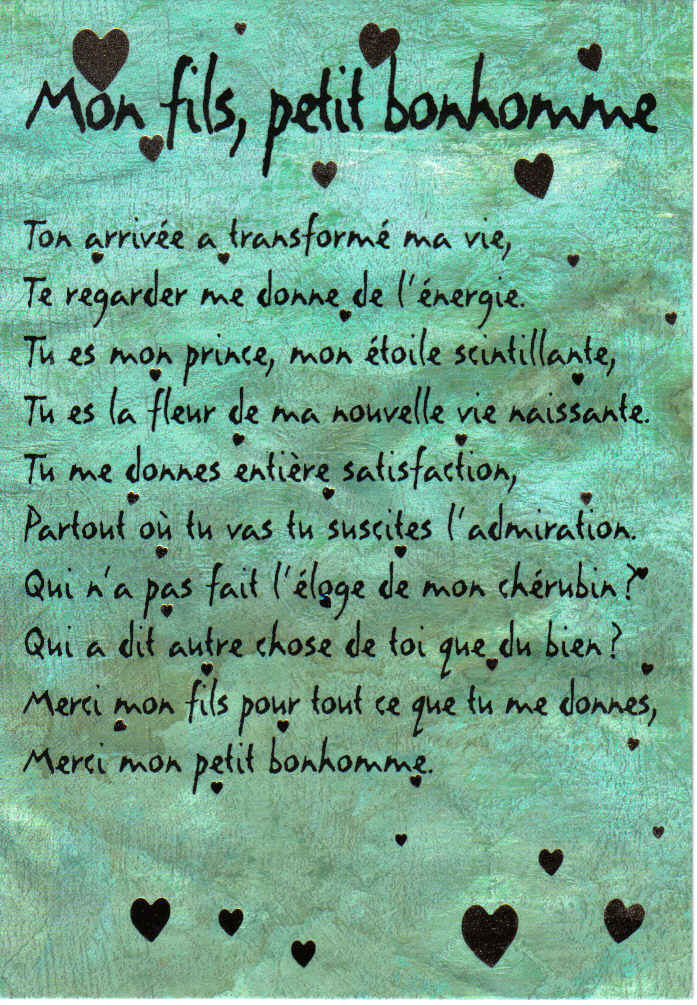 Mon fils, petit bonhomme
Ton arrivée a transformé ma vie,
Te regarder me donne de l'énergie.
Tu es mon prince, mon étoile scintillante,
Tu es la fleur de ma nouvelle vie naissante.
Tu me donnes entière satisfaction,
Partout où tu vas tu suscites l'admiration.
Qui n'a pas fait l'éloge de mon chérubin ?
Qui a dit autre chose de toi que du bien ?
Merci mon fils pour tout ce que tu me donnes,
Merci mon petit bonhomme.